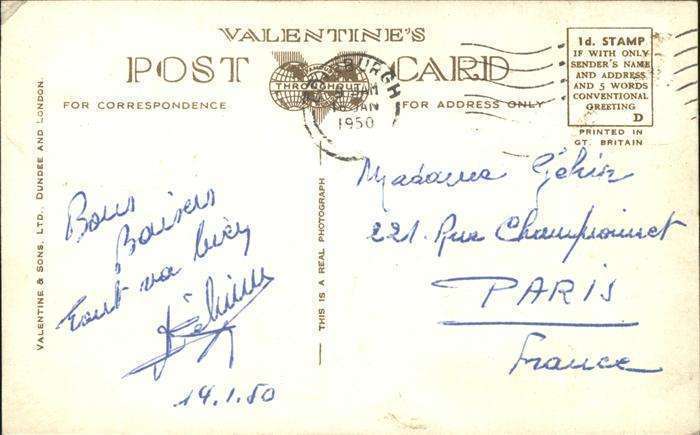 VALENTINE'S
POST CARD
THROUGHOUT
FOR CORRESPONDENCE
FOR ADDRESS ONLY
1d. STAMP
IF WITH ONLY
SENDER'S NAME
AND ADDRESS
AND 5 WORDS
CONVENTIONAL
GREETING
D
PRINTED IN
GT. BRITAIN
BURGH
AM
JAN
1950
VALENTINE & SONS, LTD., DUNDEE AND LONDON.
THIS IS A REAL PHOTOGRAPH
Bons
Baisers
Tout va bien
19.1.50
Madame
221. Rue Championnet
PARIS
France